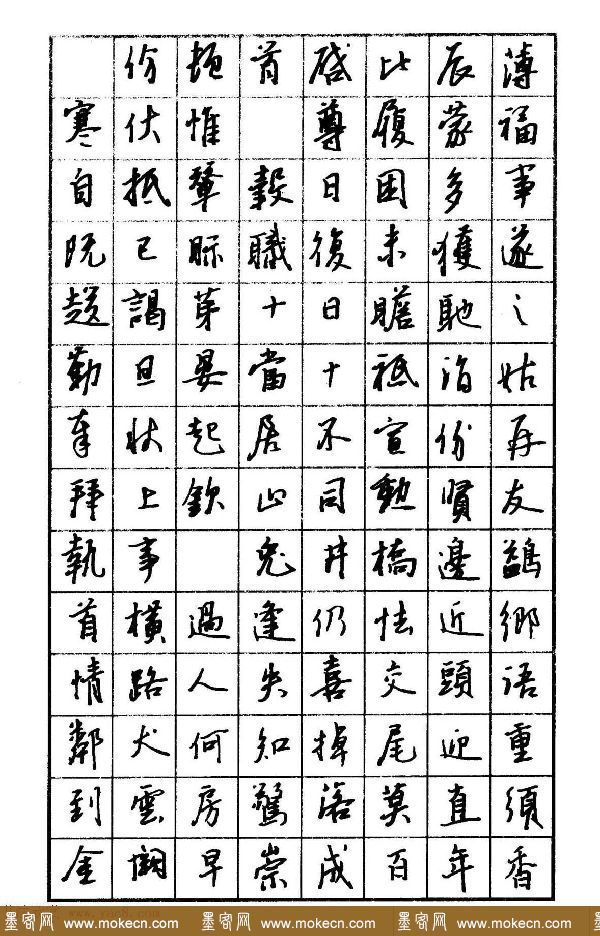 份頓首啟比辰薄
寒伏惟 尊履蒙福
自抵輦轂日困多事
既已眎職復未獲遂
趨謁芽十日瞻馳之
勤旦晏當十祗詣姑
奉狀起居不宣份再
拜上欽止同勳賢友
執事 兔井橋邊鷁
首橫過逢仍怯近鄉
情路人失喜交頭語
鄰犬何知掉尾迎重
到雲房驚落莫直須
金闕早崇成百年香
墨客网 www.mokecn.com 墨客网 www.mokecn.com 墨客网 www.mokecn.com